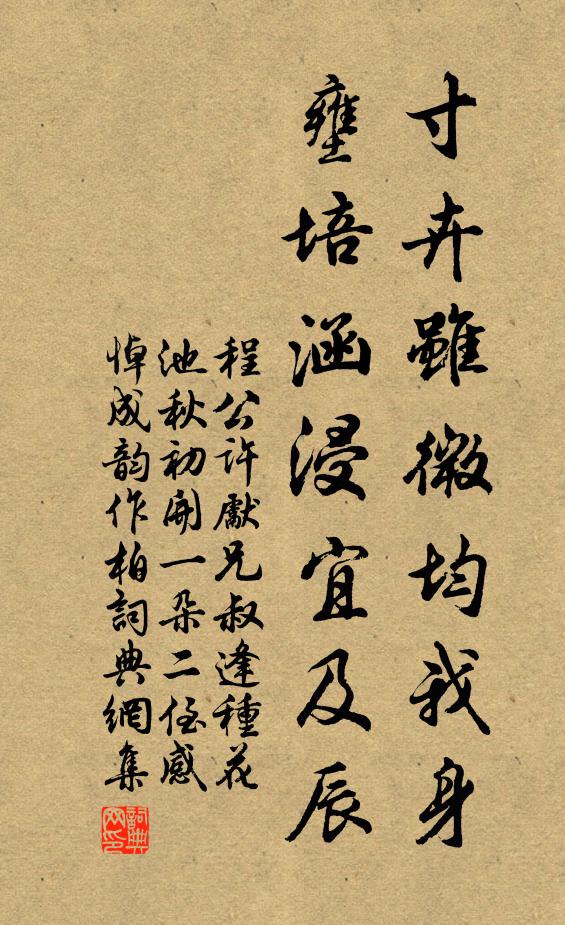 寸卉雖微均我身
壅培涵浸宜及辰
程公許獻兄叔逢種花
池秋初開一朵二侄感
悼成韵作柏詞典網集
詞典
网印